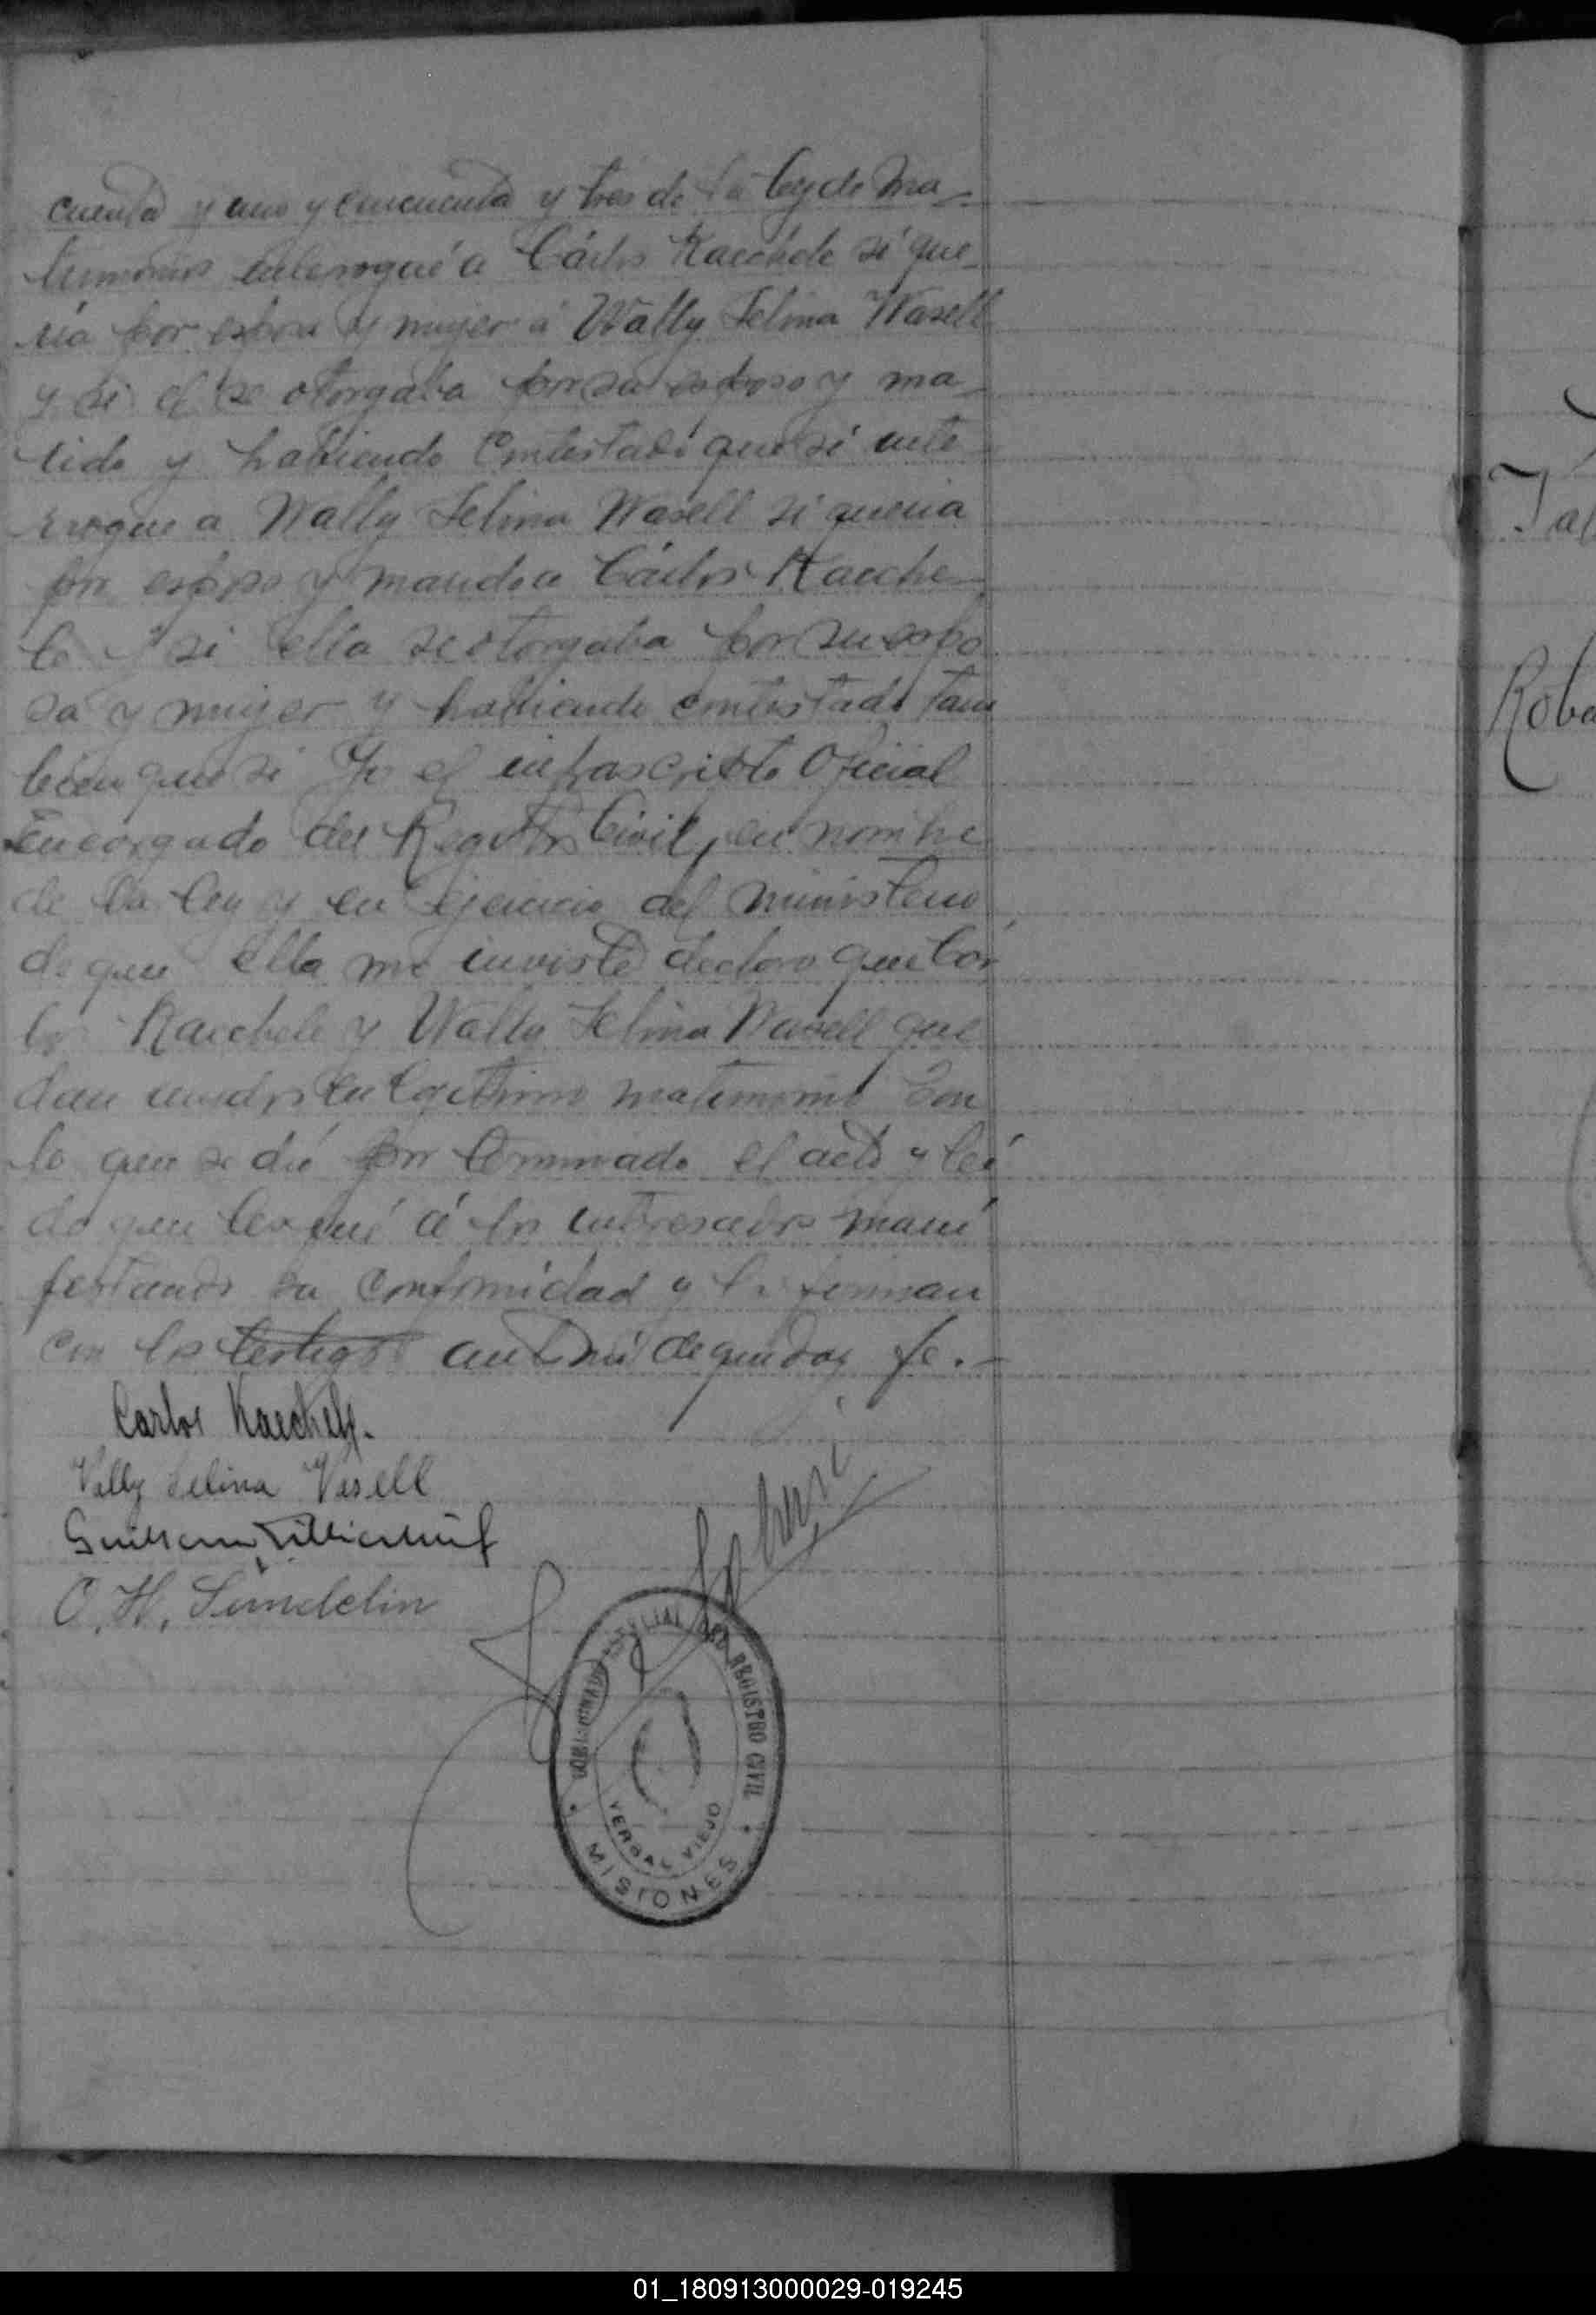 cuenta y uno y cincuenta y tres de la ley de Ma-
trimonios interrogué a Cárlos Kaechele si que-
ria por esposa y mujer á Wally Selina Wasell
y si el se otorgaba por su esposo y ma-
rido y habiendo contestado que si inte
rrogue a Wally Selina Wasell si queria
por esposo y marido a Cárlos Kaeche-
le y si ella se otorgaba por su espo
sa y mujer y habiendo contestado tam
bien que si Yo el infrascripto Oficial
Encargado del Registro Civil, en nombre
de la ley y en ejercicio del ministerio
de que ella me inviste declaro que Cár
los Kaechele y Wally Selina Wasell que
dan unidos en legitimo matrimonio Con
lo que se dió por terminado el acto y leí
do que les fué á los interesados mani
festando su conformidad y la firman
con los testigos ante mi de que doy fe.-
Carlos Kaechele.
Vally Selina Vesell
Guillermo
O. H. Sundelin
DEL REGISTRO CIVIL
YERBAL VIEJO
MISIONES
Rob
01_180913000029-019245